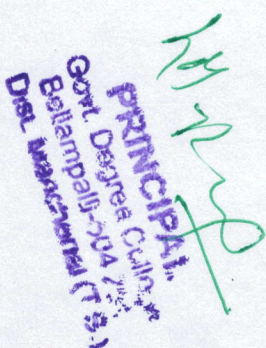 PRINCIPAL
Govt. Degree
Bellampalli-504
Dist. Mancherial (T.S.)